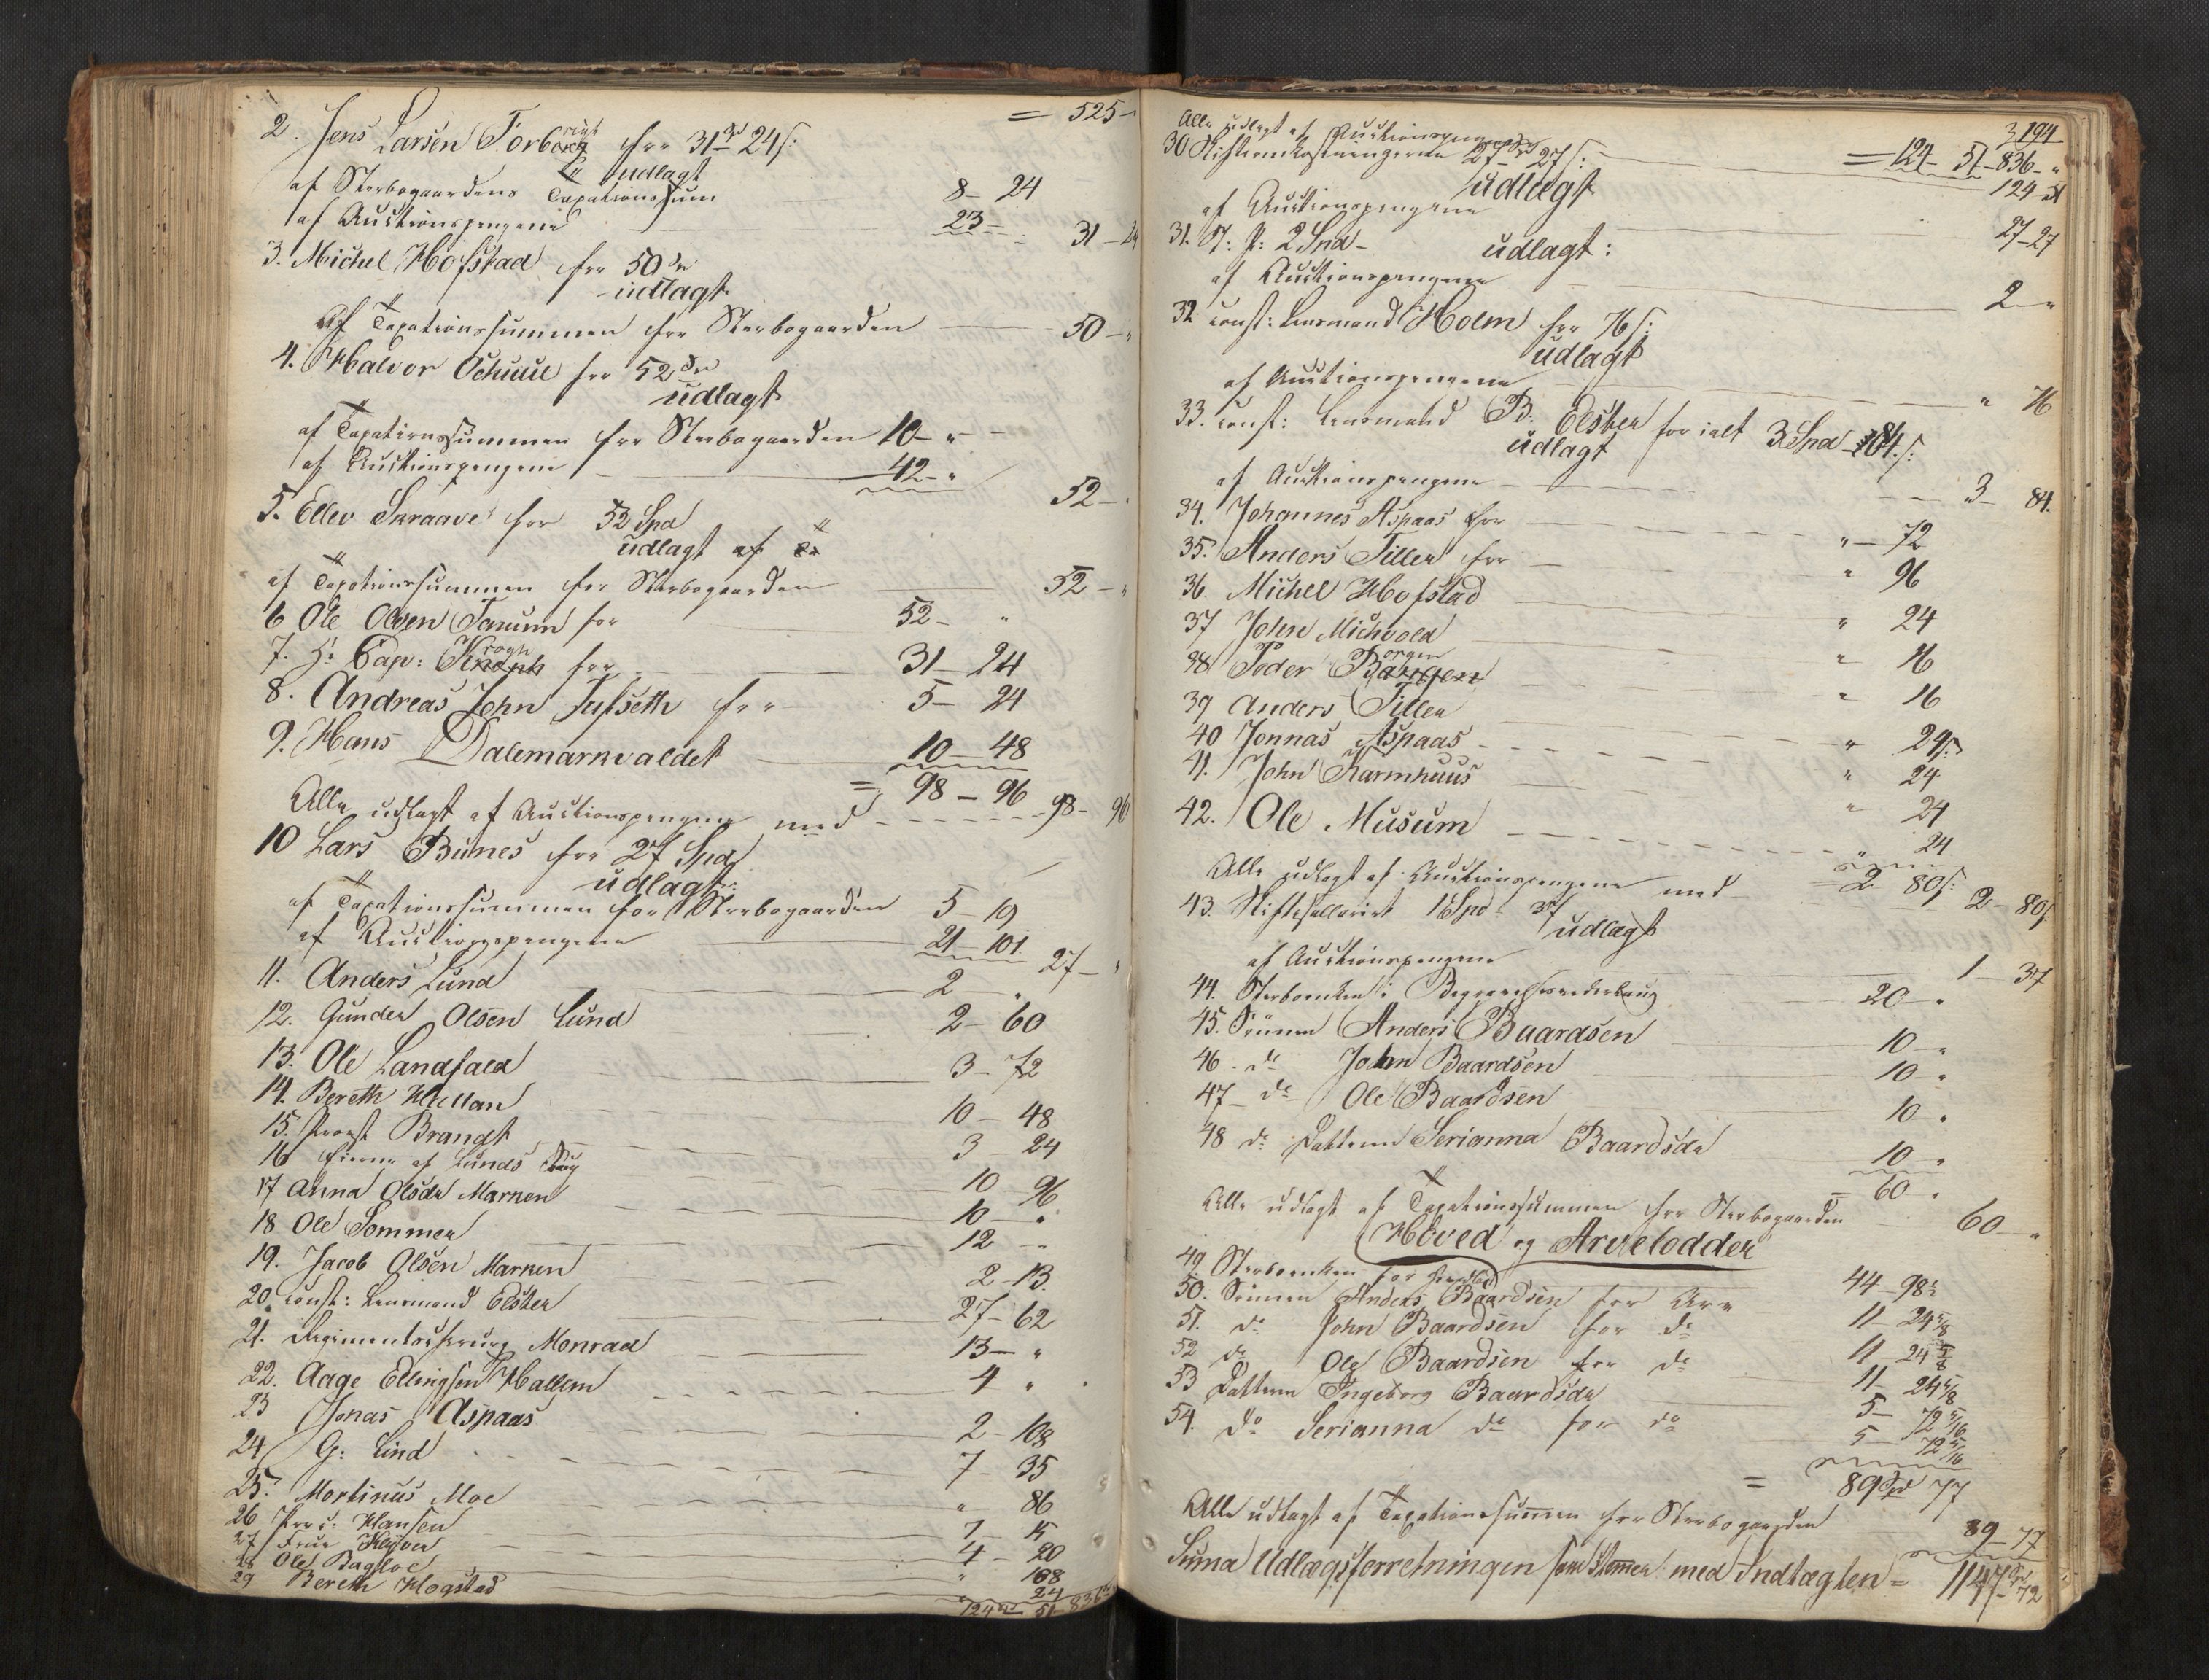 = 525-
2. Jens Larsen Forb for 31 24 s:
udlagt
af Sterbogaardens Taxationssum 8- 24
af Auctionspengene 23- 31-24
3. Michel Hofstad for 50
udlagt
Af Taxationssummen for Sterbogaarden 50-"
4. Halvor Schuue for 52
udlagt
af Taxationssummen for Sterbogaarden 10-"
af Auctionspengene 42-" 52-
5. Ellev Skraave for 52 Spd
udlagt af
af Taxationssummen for Sterbogaarden 52-"
6 Ole Olsen for 52- "
7. Hr Cap: Krogh for 31-24
8. Andreas John for 5- 24
9. Hans Dalemarksvaldet 10-48
= 98-96
Alle udlagt af Auctionspengene med 98- 96
10 Lars Bunes for 27 Spd
udlagt:
af Taxationssummen for Sterbogaarden 5-19
af Auctionspengene 21-101 27-"
11. Anders Lund 2-"
12. Gunder Olsen Lund 2-60
13. Ole Landfald 3-72
14. Bereth Hullan 10-48
15. Provst Brandt 3 24
16 Eierne af Lunds 10 96
17 Anna Olsdr Marken 10-"
18 Ole Sommer 12-"
19. Jacob Olsen Marken 2-13.
20. const: Lensmand Elster 27-62
21. Regimentschirurg Monrad 13-"
22. Aage Ellingsen Hallem 4 "
23 Jonas Aspaas 2-108
24 G: Lind 7-35
25. Mortinus Moe " 86
26 Hansen 7-15
27 Frue Klüver 4-20
28 Ole Bagloe " 108
29 Bereth Hogstad " 24
124 51 836
194
Alle udlagt af Auctionspengene = 124- 51-836-"
124 51
30 Skifteomkostningerne 27 27 s:
udlagt
af Auctionspengene 27-27
31. 2 Spd-
udlagt:
af Auctionspengene 2-"
32 const: Lensmand Holm for 76 s:
udlagt
af Auctionspengene " 76
33. const: Lensmand B: Elster for ialt 3 Spd 84 s:
udlagt
af Auctionspengene 3- 84.
34. Johannes Aspaas for "-72
35. Anders Tiller for " 96
36. Michel Hofstad " 24
37 John Michvold " 16
38 Peder Borgen " 16
39 Anders Tiller " 24 s:
40 Jonnas Aspaas " 24
41. John Karmhuus " 24
42. Ole Musum " 24
=2 80 s:
Alle udlagt af Auctionspengene med 2- 80 s
43. Skiftesallariet 1 Spd: 37
udlagt
af Auctionspengene 1 37
44. Sterboenken i 20-"
45. Sönnen Anders Baardsen 10-"
46. do John Baardsen 10-"
47- do Ole Baardsen 10 "
48 do Datteren Serianna Baardsdr 10 "
= 60 "
Alle udlagt af Taxationssummen for Sterbogaarden 60-"
Hoved og Arvelodder
49 Sterboenken for 44-98½
50. Sönnen Anders Baardsen for Arv 11 24 5/8
51. do John Baardsen for do 11 24 5/8
52 do Ole Baardsen for do 11- 24 5/8
53 Datteren Ingeborg Baardsdr 5- 72 5/16
54. do Serianna do for do 5- 72 5/16
= 89 Spd 77
Alle udlagt af Taxationssummen for Sterbogaarden 89-77
Suma Udlægsforretningen som stemmer med Indtægten = 1147-72